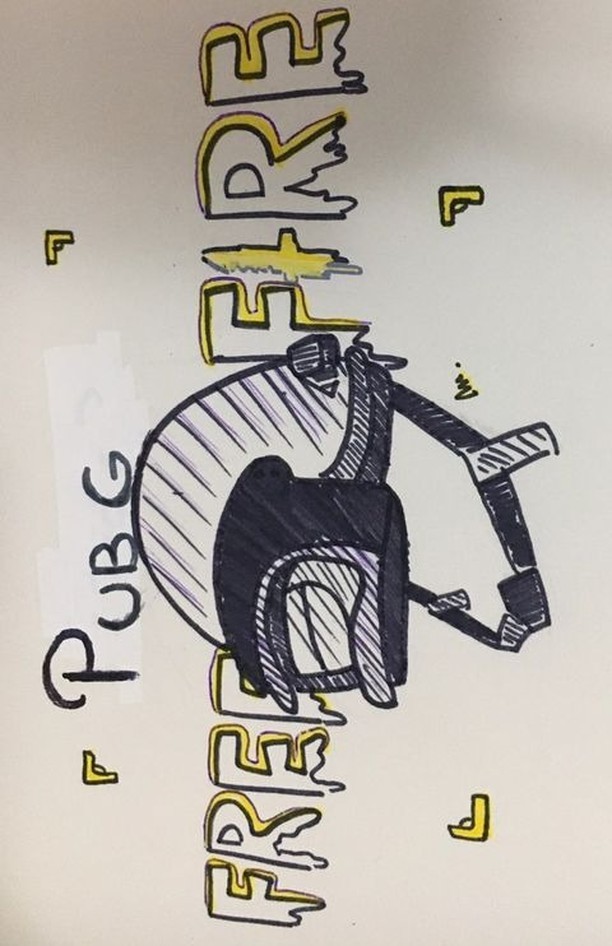 PUBG
FREE FIRE